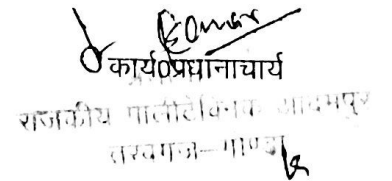 Kumar
कार्य0प्रधानाचार्य
राजकीय पालीटेक्निक आदमपुर
तरबगन्ज—गोण्डा